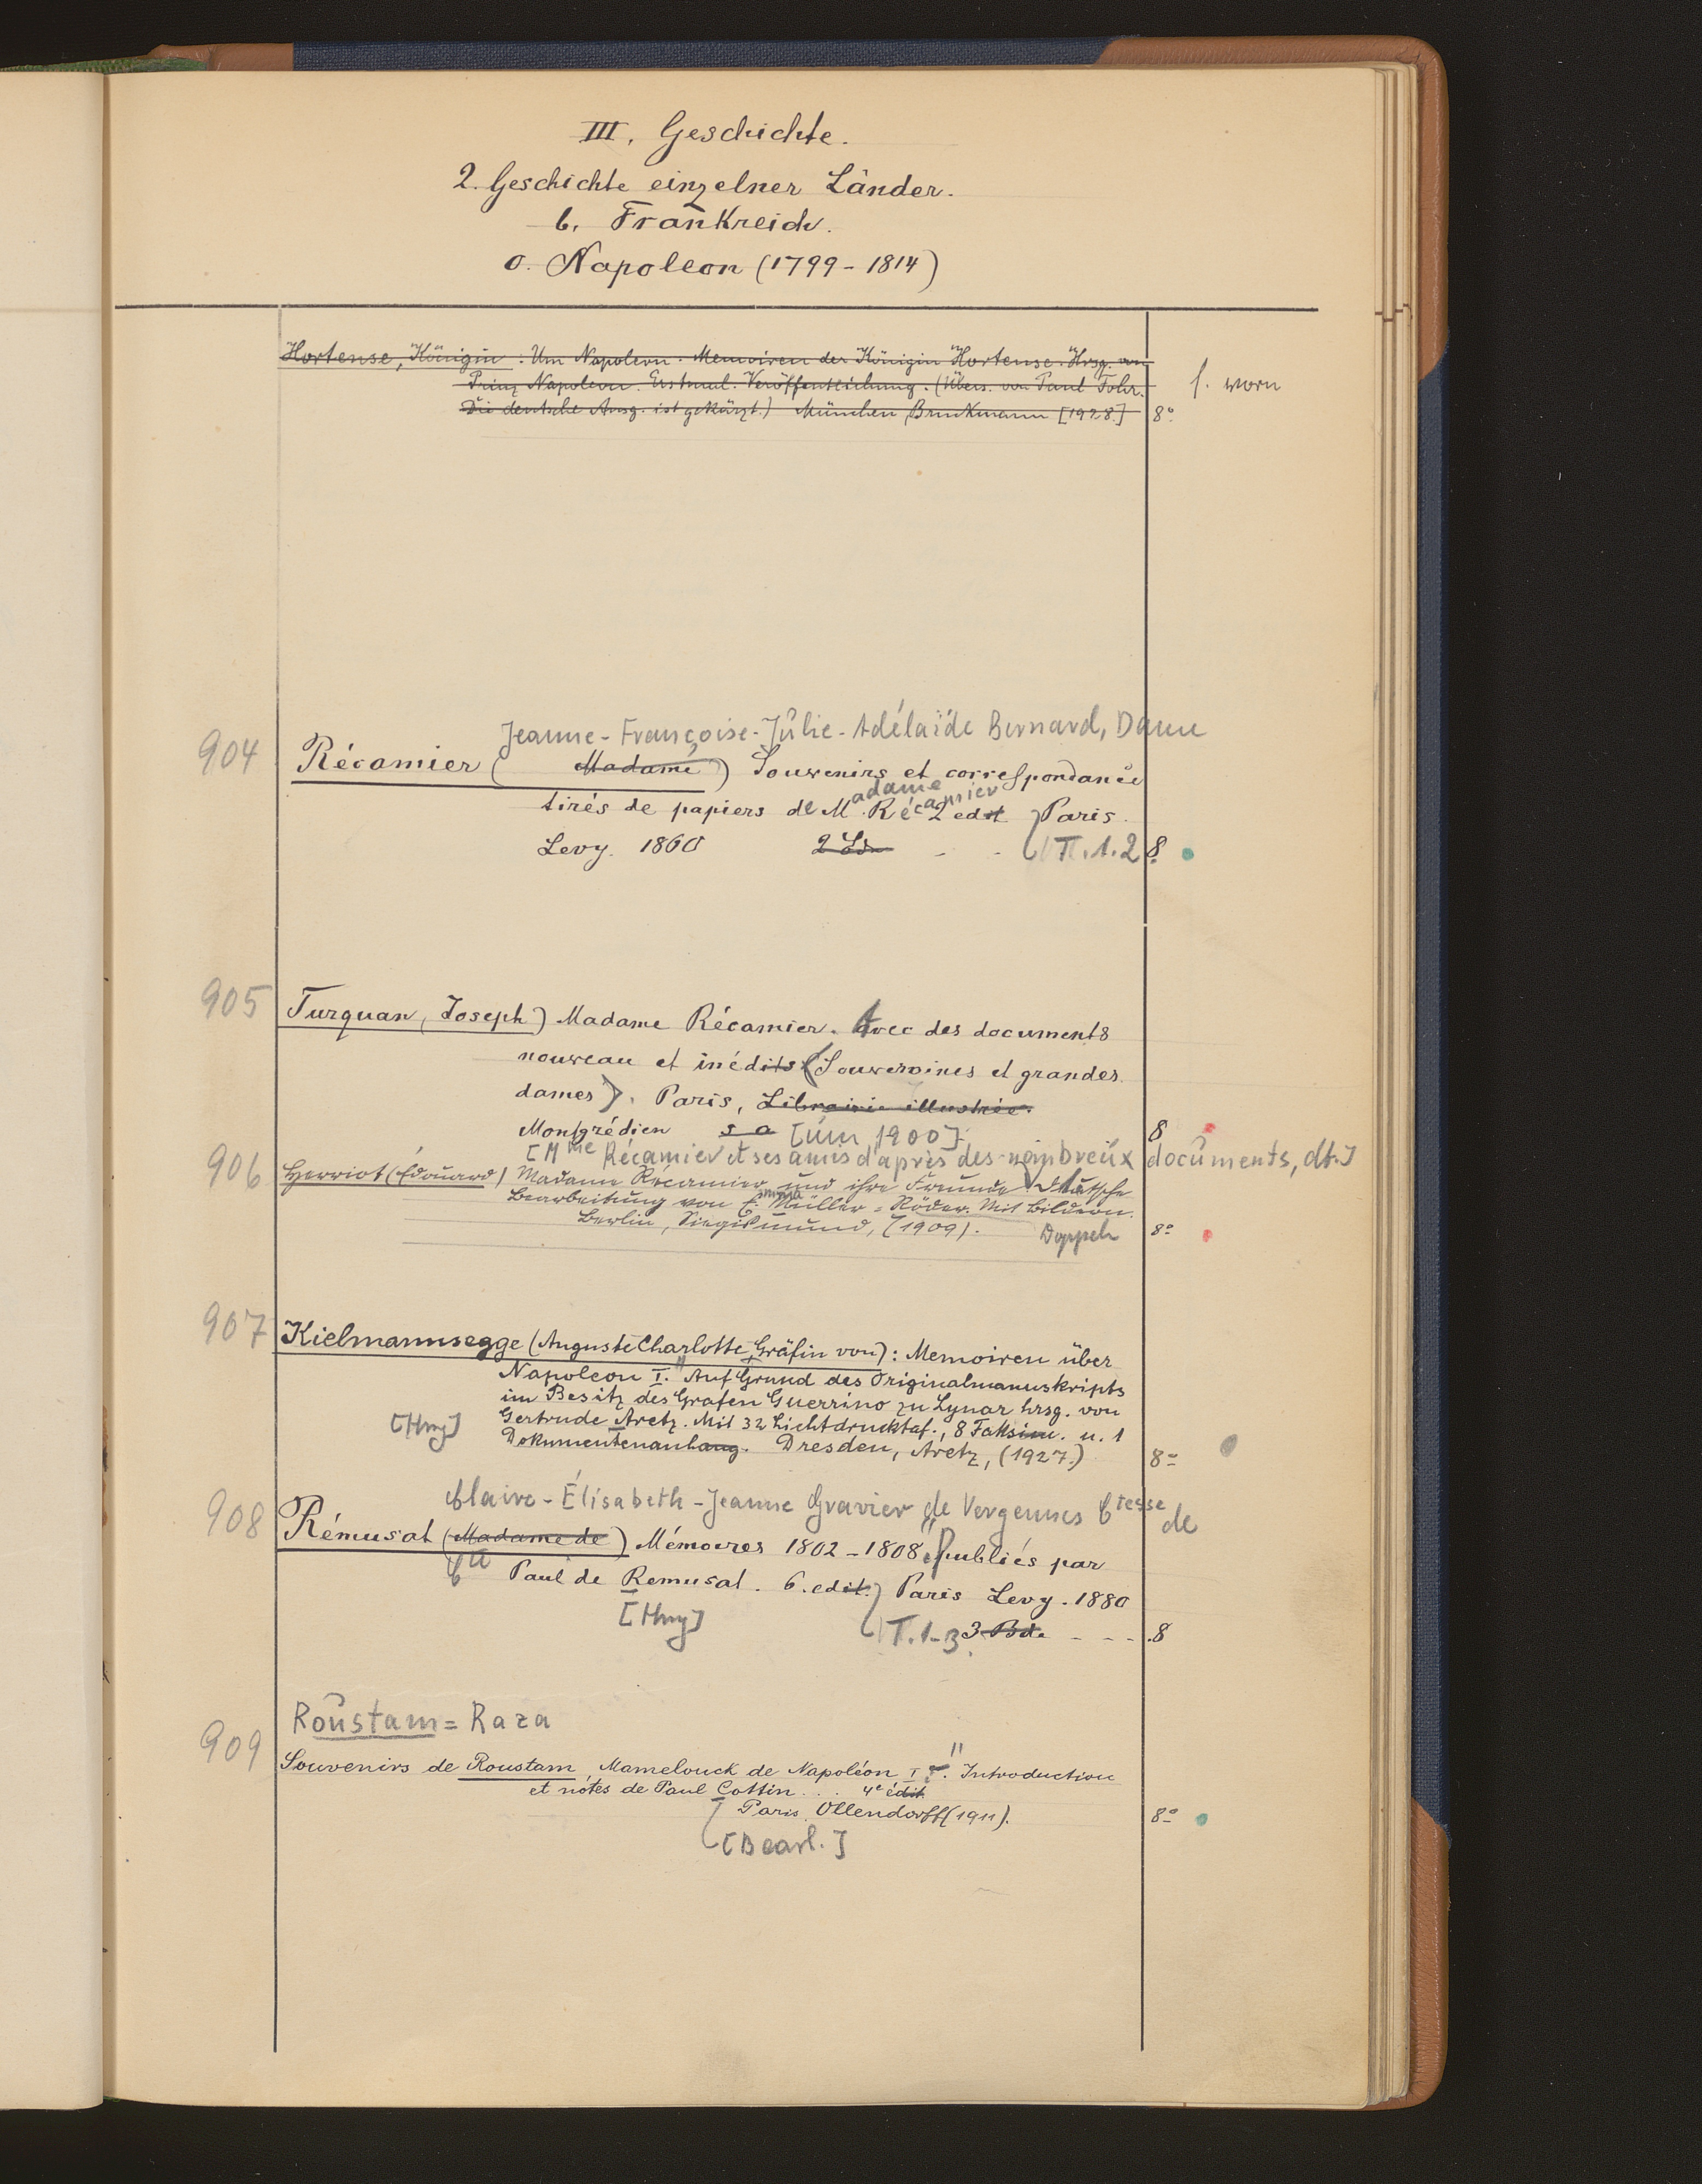 III. Geschichte.
2. Geschichte einzelner Länder.
b. Frankreich.
o. Napoleon (1799-1814)
Hortense, Königin: Um Napoleon. Memoiren der Königin Hortense. Hrsg. von
Prinz Napoleon. Erstmal. Veröffentlichung. (Übers. von Paul Fohr.
Die deutsche Ausg. ist gekürzt.) München Bruckmann [1928.] 8°
f. vorn
Jeanne-Françoise-Julie-Adélaïde Bernard, Dame
904 Récamier (Madame) Souvenirs et correspondance
tirés de papiers de Madame Récamier 2 edit Paris.
Levy. 1860 2 Bde - - T. 1.2 8.
905 Turquan, Joseph) Madame Récamier. Avec des documents
nouveau et inédits (Souveraines et grandes
dames). Paris, Librairie illustrée.
Montgrédien s a [um 1900] 8
[Mme Récamier et ses amis d'après des nombreux documents, dt.]
906 Herriot (Edouard) Madame Récamier und ihre Freunde Deutsche
Bearbeitung von Emma Müller=Röder. Mit Bildern.
Berlin, Siegismund, (1909). Doppel 8°
907 Kielmannsegge (Auguste Charlotte Gräfin von): Memoiren über
Napoleon I." Auf Grund des Originalmanuskripts
im Besitz des Grafen Guerrino zu Lynar hrsg. von
[Hrsg] Gertrude Aretz. Mit 32 Lichtdrucktaf., 8 Faksim. u. 1
Dokumentenanhang. Dresden, Aretz, (1927.) 8°
Claire-Élisabeth-Jeanne Gravier de Vergennes Ctesse de
908 Rémusat (Madame de) Mémoires 1802-1808" publiés par
Paul de Remusat. 6. edit. Paris Levy. 1880
[Hrsg] T. 1-3 3 Bde - - - 8
Roustam=Raza
909 Souvenirs de Roustam, Mamelouck de Napoléon I er." Introduction
et notes de Paul Cottin... 4e édit
Paris Ollendorff (1911). 8°
[Bearb.]